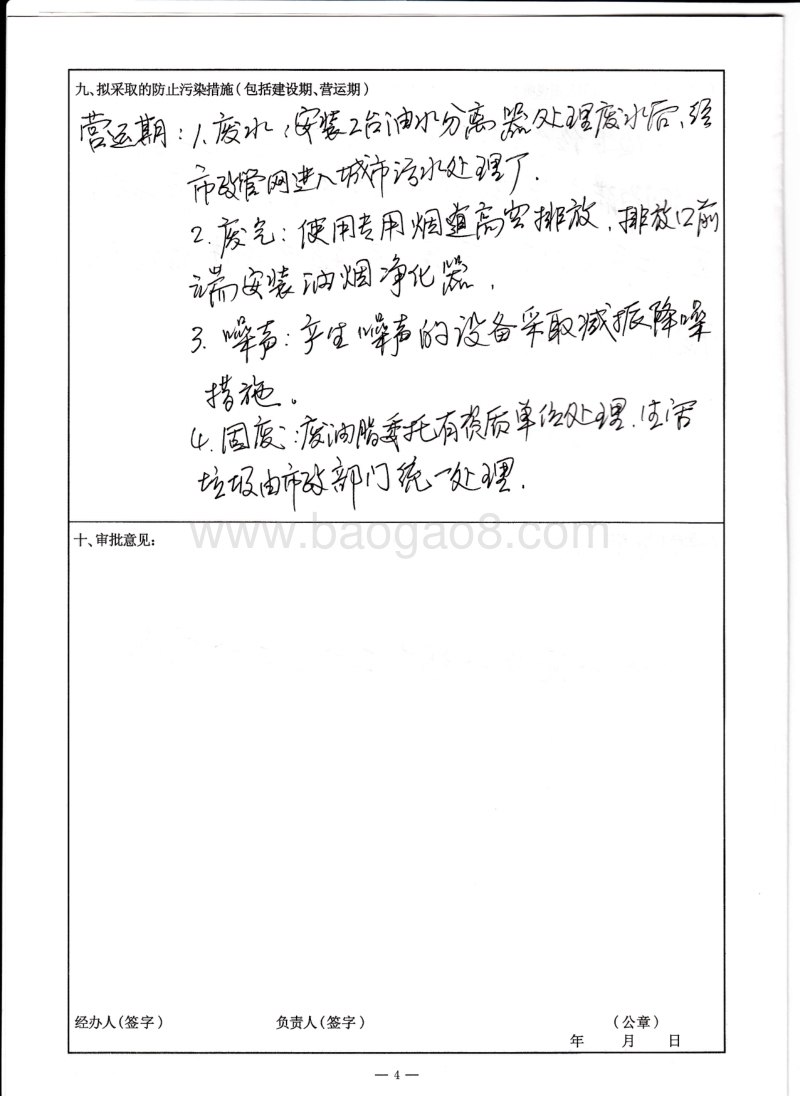 九、拟采取的防止污染措施(包括建设期、营运期)
营运期:1.废水:安装2台油水分离器处理废水后、经
市政管网进入城市污水处理厂.
2.废气:使用专用烟道高空排放.排放口前
端安装油烟净化器.
3.噪声:产生噪声的设备采取减振降噪
措施。
4.固废:废油脂委托有资质单位处理.生活
垃圾由市政部门统一处理.
www.baogao8.com
十、审批意见:
经办人(签字) 负责人(签字) (公章)
年 月 日
— 4 —